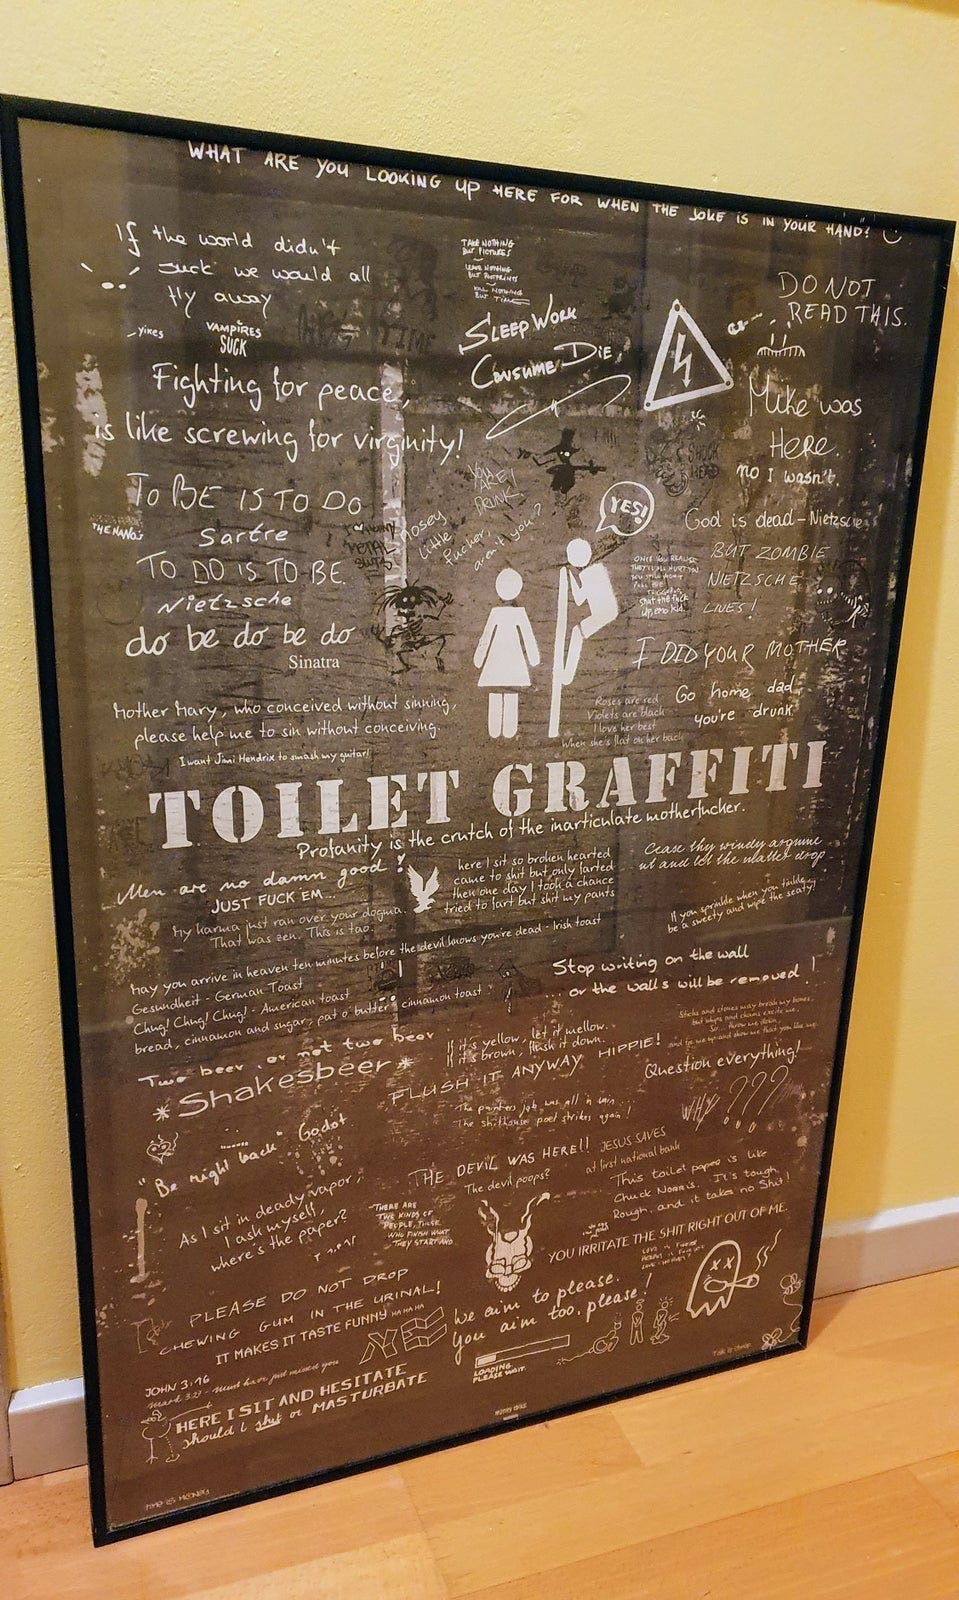 WHAT ARE YOU LOOKING UP HERE FOR WHEN THE JOKE IS IN YOUR HAND?
If the world didn't
suck we would all
fly away
TAKE NOTHING
BUT PICTURES
LEAVE NOTHING
BUT FOOTPRINTS
KILL NOTHING
BUT TIME
DO NOT
READ THIS.
yikes
VAMPIRES
SUCK
SLEEP WORK
CONSUME DIE
Fighting for peace,
is like screwing for virginity!
Mike was
HERE.
no I wasn't.
TO BE IS TO DO
Sartre
TO DO IS TO BE.
Nietzsche
do be do be do
Sinatra
YOU
ARE
DRUNK
nosey
little
fucker,
aren't you?
YES!
God is dead - Nietzsche
BUT ZOMBIE
NIETZSCHE
LIVES!
I DID YOUR MOTHER
Go home dad,
you're drunk
Mother Mary, who conceived without sinning,
please help me to sin without conceiving.
Roses are red
Violets are black
I love her best
When she's flat on her back
I want Jimi Hendrix to smash my guitar!
TOILET GRAFFITI
Profanity is the crutch of the inarticulate motherfucker.
Men are no damn good!
JUST FUCK EM...
here I sit so broken hearted
came to shit but only farted
then one day I took a chance
tried to fart but shit my pants
Cease thy windy argume
nt and let the matter drop
My karma just ran over your dogma.
That was zen. This is tao.
If you sprinkle when you tinkle...
be a sweety and wipe the seaty!
May you arrive in heaven ten minutes before the devil knows you're dead - Irish toast
Gesundheit - German Toast
Chug! Chug! Chug! - American toast
bread, cinnamon and sugar, pat o' butter - cinnamon toast
Stop writing on the wall
or the walls will be removed!
Sticks and stones may break my bones,
but whips and chains excite me.
So... throw me down,
and tie me up and show me that you like me.
Two beer, or not two beer
*Shakesbeer*
If it's yellow, let it mellow..
If it's brown, flush it down.
FLUSH IT ANYWAY HIPPIE!
Question everything!
WHY ???
The painters job was all in vain...
The shithouse poet strikes again!
"Be right back" Godot
THE DEVIL WAS HERE!!
The devil poops?
JESUS SAVES
at first national bank
This toilet paper is like
Chuck Norris. It's tough,
Rough, and it takes no Shit!
As I sit in deadly vapor,
I ask myself,
where's the paper?
THERE ARE
TWO KINDS OF
PEOPLE, THOSE
WHO FINISH WHAT
THEY START AND
YOU IRRITATE THE SHIT RIGHT OUT OF ME.
PLEASE DO NOT DROP
CHEWING GUM IN THE URINAL!
IT MAKES IT TASTE FUNNY HA HA HA
YES
We aim to please.
You aim too, please!
LOADING
PLEASE WAIT.
JOHN 3:16
Mark 3:27 - must have just missed you
HERE I SIT AND HESITATE
should I shit or MASTURBATE
Talk is cheap
money talks
TIME IS MONEY